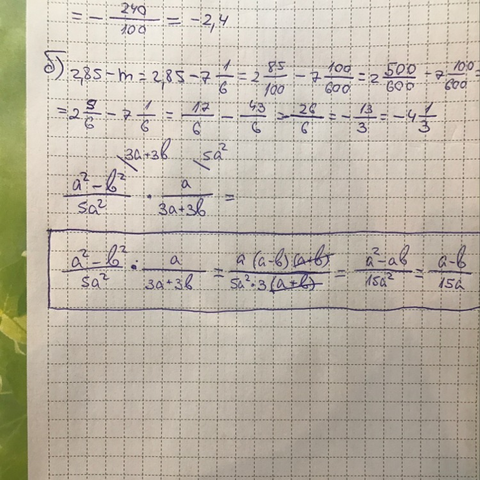 = - 240/100 = -2,4
б) 2,85 - m = 2,85 - 7 1/6 = 2 85/100 - 7 100/600 = 2 500/600 - 7 100/600 =
= 2 5/6 - 7 1/6 = 17/6 - 43/6 = - 26/6 = - 13/3 = -4 1/3
\3a+3b \5a²
a²-b²/5a² · a/3a+3b =
a²-b²/5a² · a/3a+3b = a(a-b)(a+b)/5a²·3(a+b) = a²-ab/15a² = a-b/15a